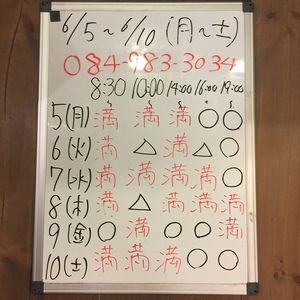 6/5～6/10 (月～土)
084-983-3034
8:30 10:00 14:00 16:00 19:00
5(月) 満 満 満 ○ ○
6(火) 満 △ 満 △ ○
7(水) 満 満 満 満 ○
8(木) 満 △ 満 満 満
9(金) ○ 満 ○ ○ 満
10(土) 満 満 満 ○ ○